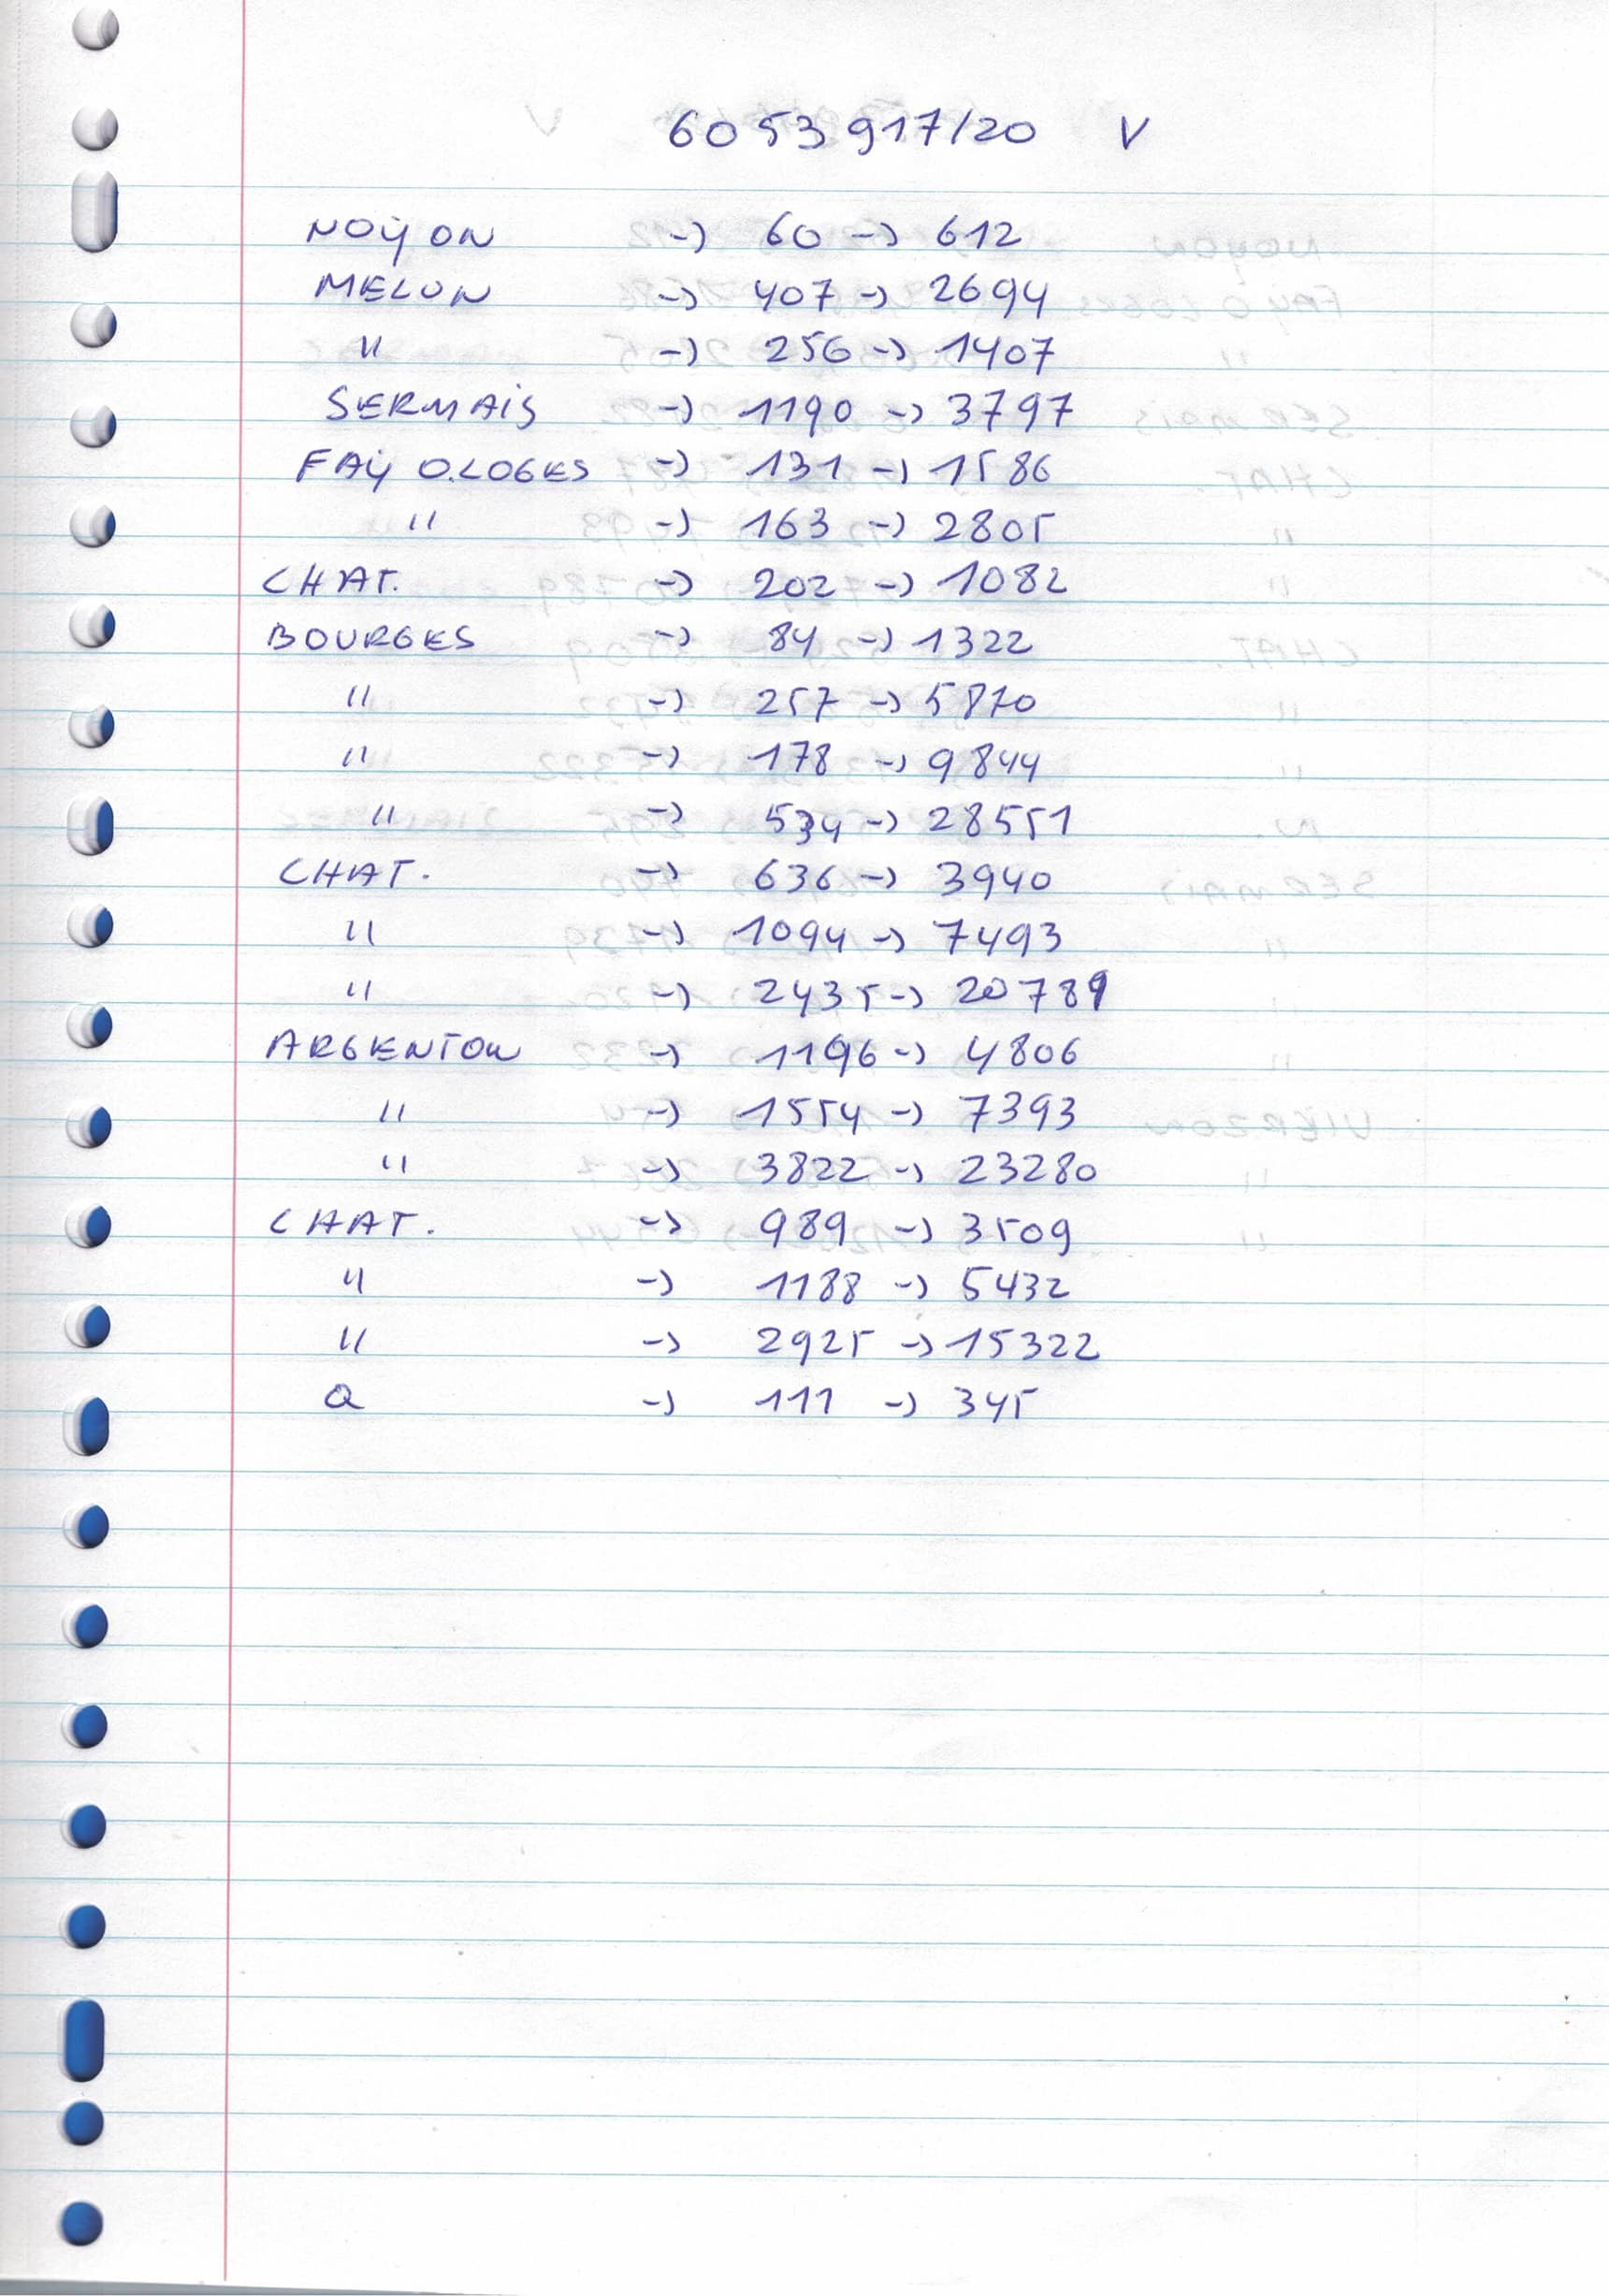 6053917/20 V
NOYON -> 60 -> 612
MELUN -> 407 -> 2694
" -> 256 -> 1407
SERMAIS -> 1190 -> 3797
FAY O.LOGES -> 131 -> 1586
" -> 163 -> 2805
CHAT. -> 202 -> 1082
BOURGES -> 84 -> 1322
" -> 257 -> 5870
" -> 178 -> 9844
" -> 534 -> 28551
CHAT. -> 636 -> 3940
" -> 1094 -> 7493
" -> 2435 -> 20789
ARGENTON -> 1196 -> 4806
" -> 1554 -> 7393
" -> 3822 -> 23280
CHAT. -> 989 -> 3509
" -> 1188 -> 5432
" -> 2925 -> 15322
Q -> 111 -> 345